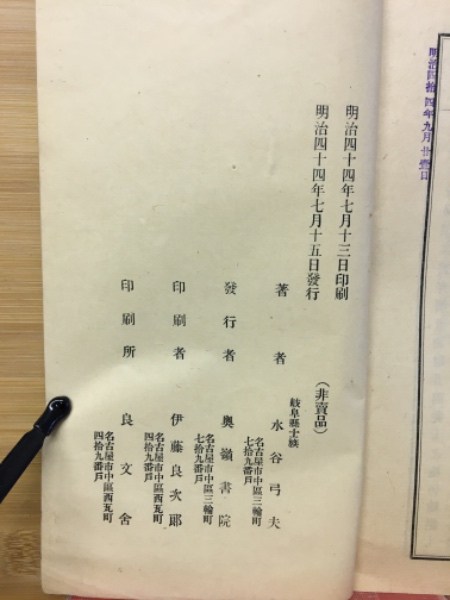 明治四拾四年九月廿壹日
明治四十四年七月十三日印刷
明治四十四年七月十五日發行
(非賣品)
岐阜縣士族
著者 水谷弓夫
名古屋市中區三輪町
七拾九番戶
發行者 奥嶺書院
名古屋市中區三輪町
七拾九番戶
印刷者 伊藤良次郎
名古屋市中區西瓦町
四拾九番戶
印刷所 良文舍
名古屋市中區西瓦町
四拾九番戶